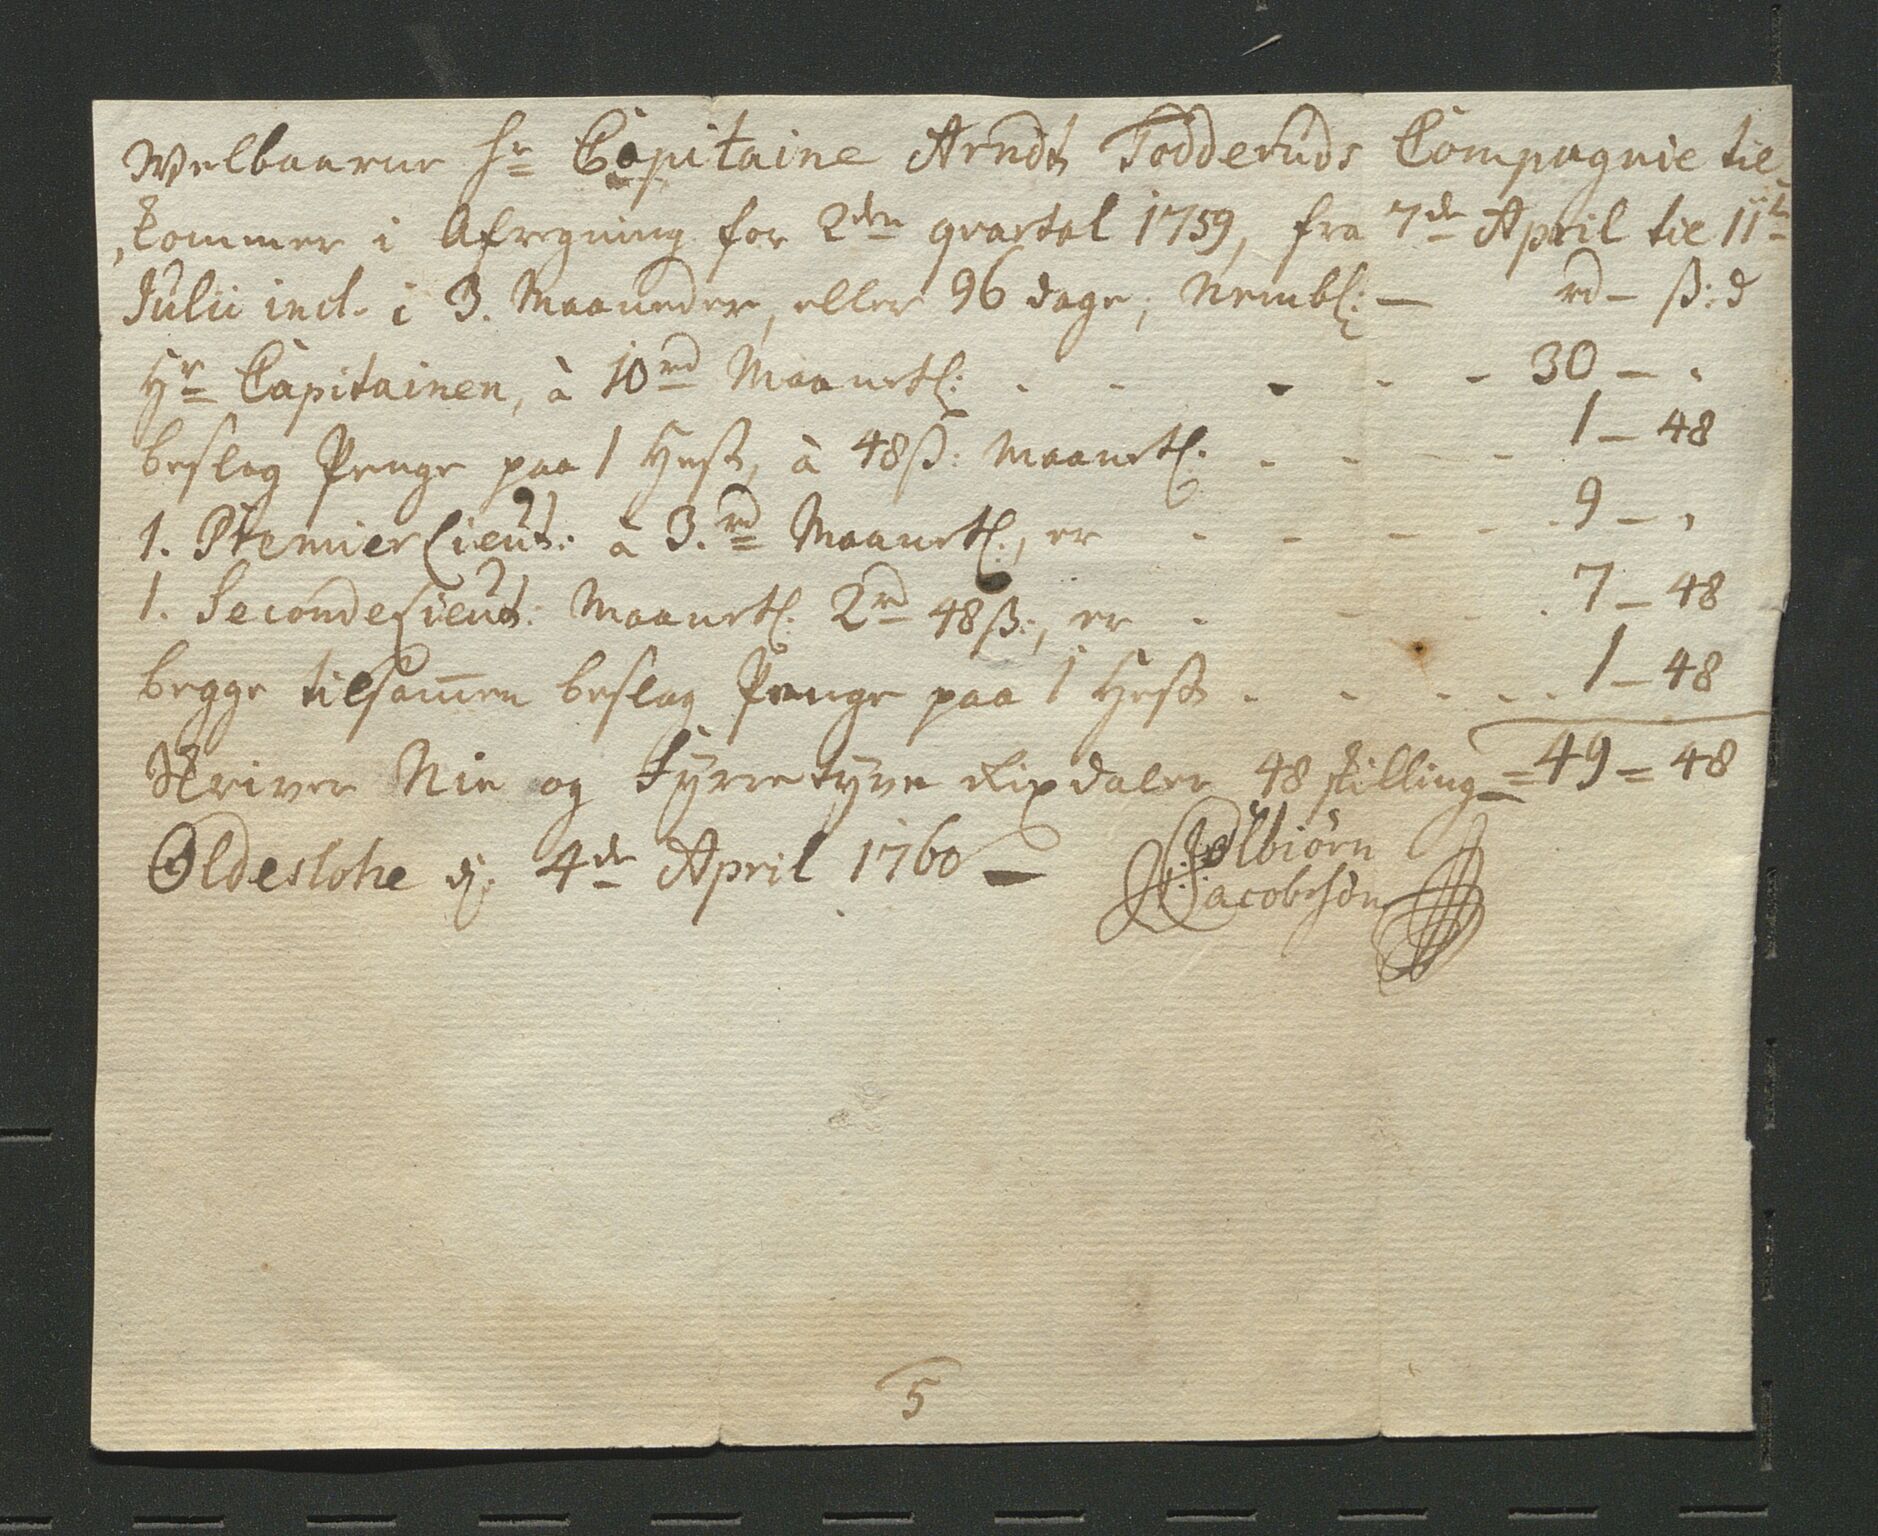 Welbaarne Hr Capitaine Arndt Todderuds Compagnie til-
kommer i Afregning for 2den qvartal 1759, fra 7de April til 11te
Julii incl. i 3. Maaneder, eller 96 dage, Nembl: — rd – ß: d
Hr Capitainen, à 10 rd Maanetl: - - - - - 30 – "
beslag Penge paa 1 Hest, à 48 ß: Maanetl. - - - - 1 – 48
1. Premier Lieut: à 3. rd Maanetl:, er - - - - - 9 – "
1. Seconde Lieut: Maanetl: 2 rd 48 ß:, er - - - - 7 – 48
begge tilsam̄en beslag Penge paa 1 Hest - - - - - 1 – 48
Skriver Nie og Fyrretyve Rixdaler 48 skilling = 49 = 48
Oldeslohe d: 4de April 1760 —
Colbiörn
Jacobsön
5